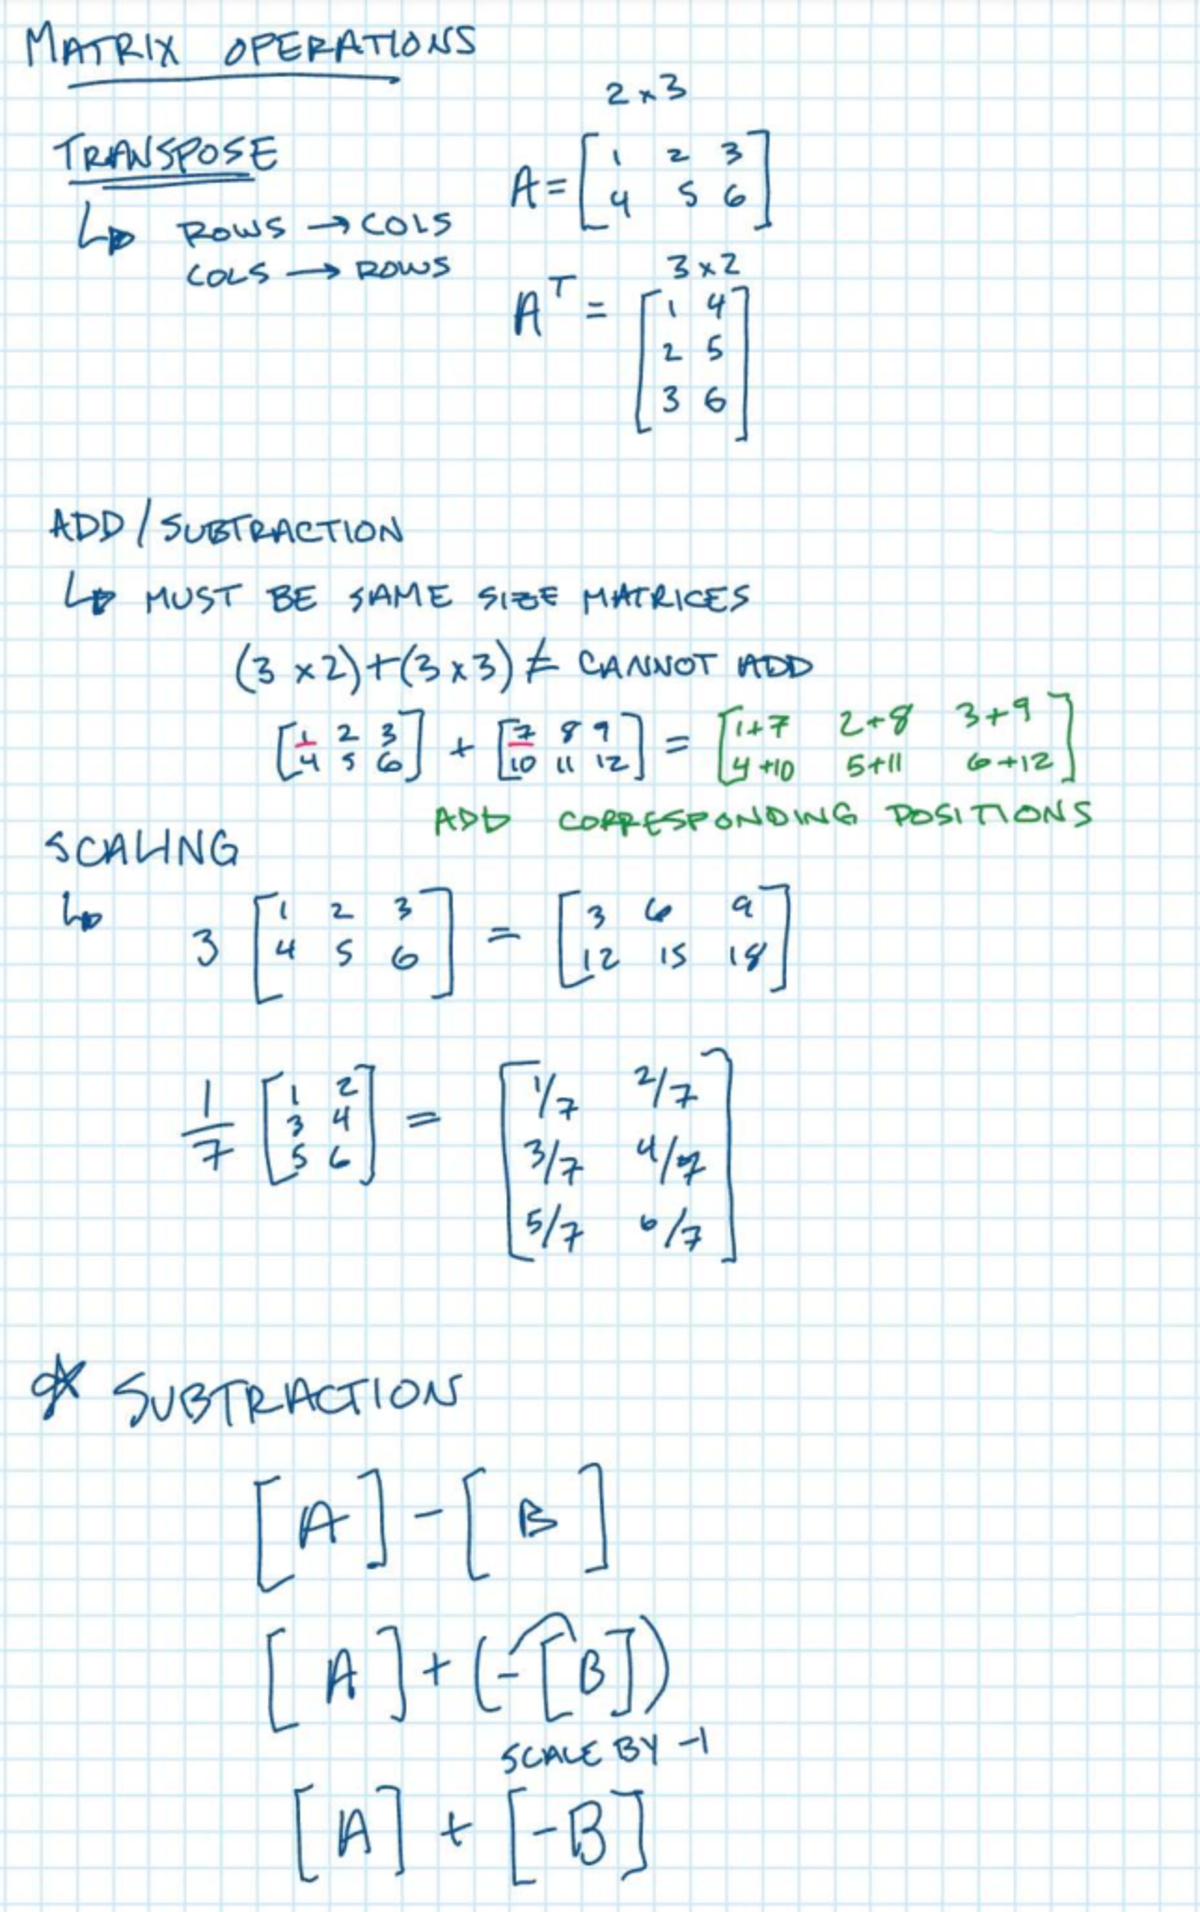 MATRIX OPERATIONS
TRANSPOSE
↳ ROWS → COLS
COLS → ROWS
2 x 3
A = [1 2 3
4 5 6]
3 x 2
A^T = [1 4
2 5
3 6]
ADD / SUBTRACTION
↳ MUST BE SAME SIZE MATRICES
(3 x 2) + (3 x 3) ≠ CANNOT ADD
[1 2 3 + [7 8 9 = [1+7 2+8 3+9
4 5 6] 10 11 12] 4+10 5+11 6+12]
ADD CORRESPONDING POSITIONS
SCALING
↳ 3 [1 2 3 = [3 6 9
4 5 6] 12 15 18]
1/7 [1 2 = [1/7 2/7
3 4 3/7 4/7
5 6] 5/7 6/7]
* SUBTRACTION
[A] - [B]
[A] + (-[B])
SCALE BY -1
[A] + [-B]